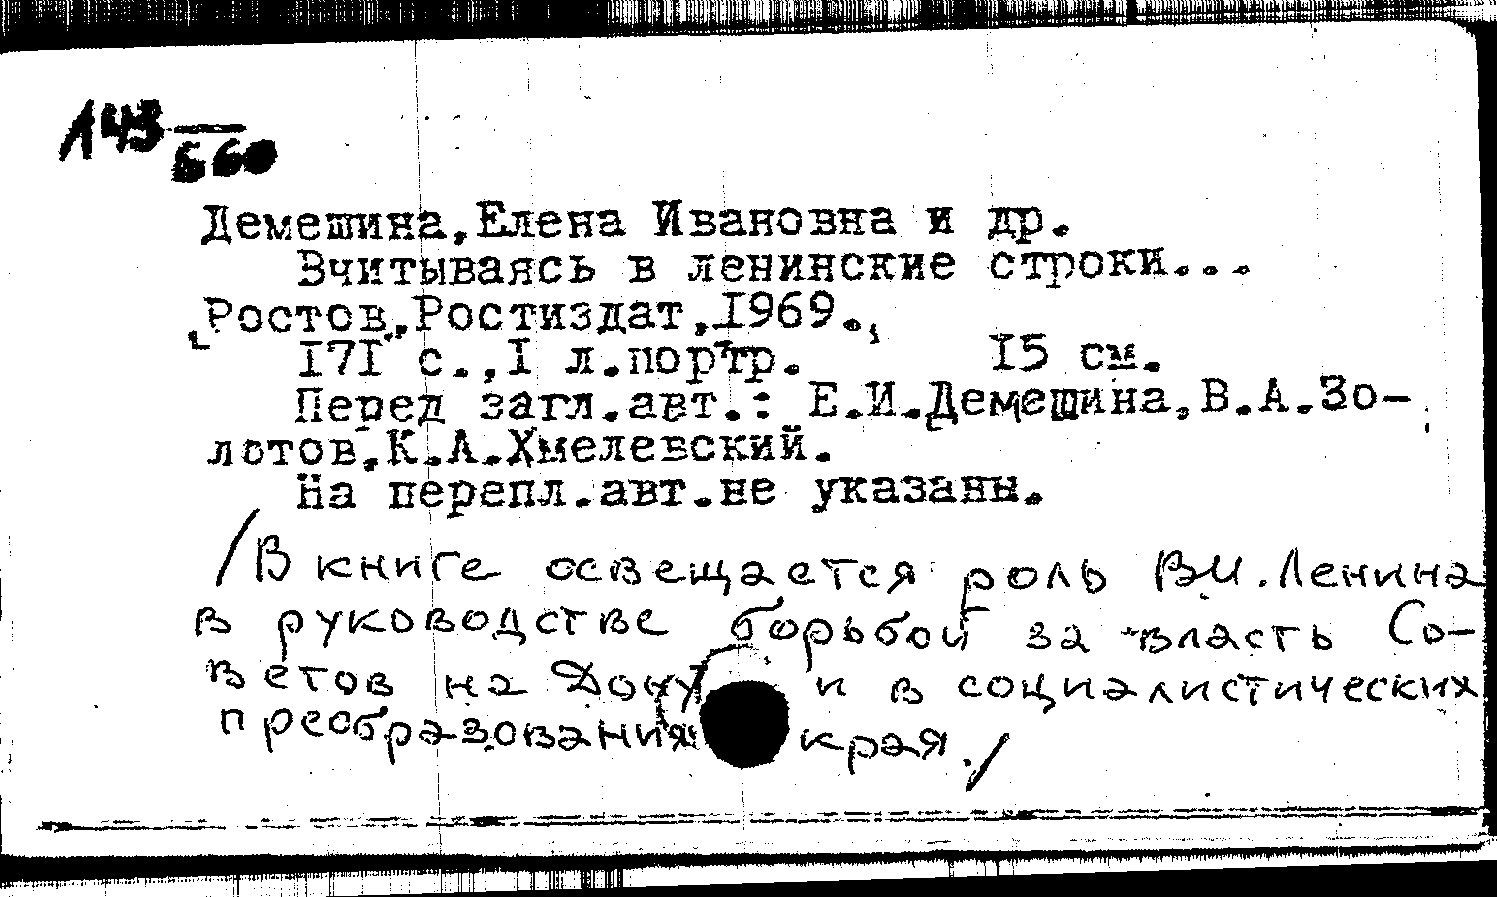 143
660
Демешина,Елена Ивановна и др.
Вчитываясь в ленинские строки...
Ростов,Ростиздат,1969.
171 с.,1 л.портр. 15 см.
Перед загл.авт.: Е.И.Демешина,В.А.Зо-
лотов,К.А.Хмелевский.
На перепл.авт.не указаны.
/В книге освещается роль В.И.Ленина
в руководстве борьбой за власть Со-
ветов на Дону и в социалистических
преобразованиях края./